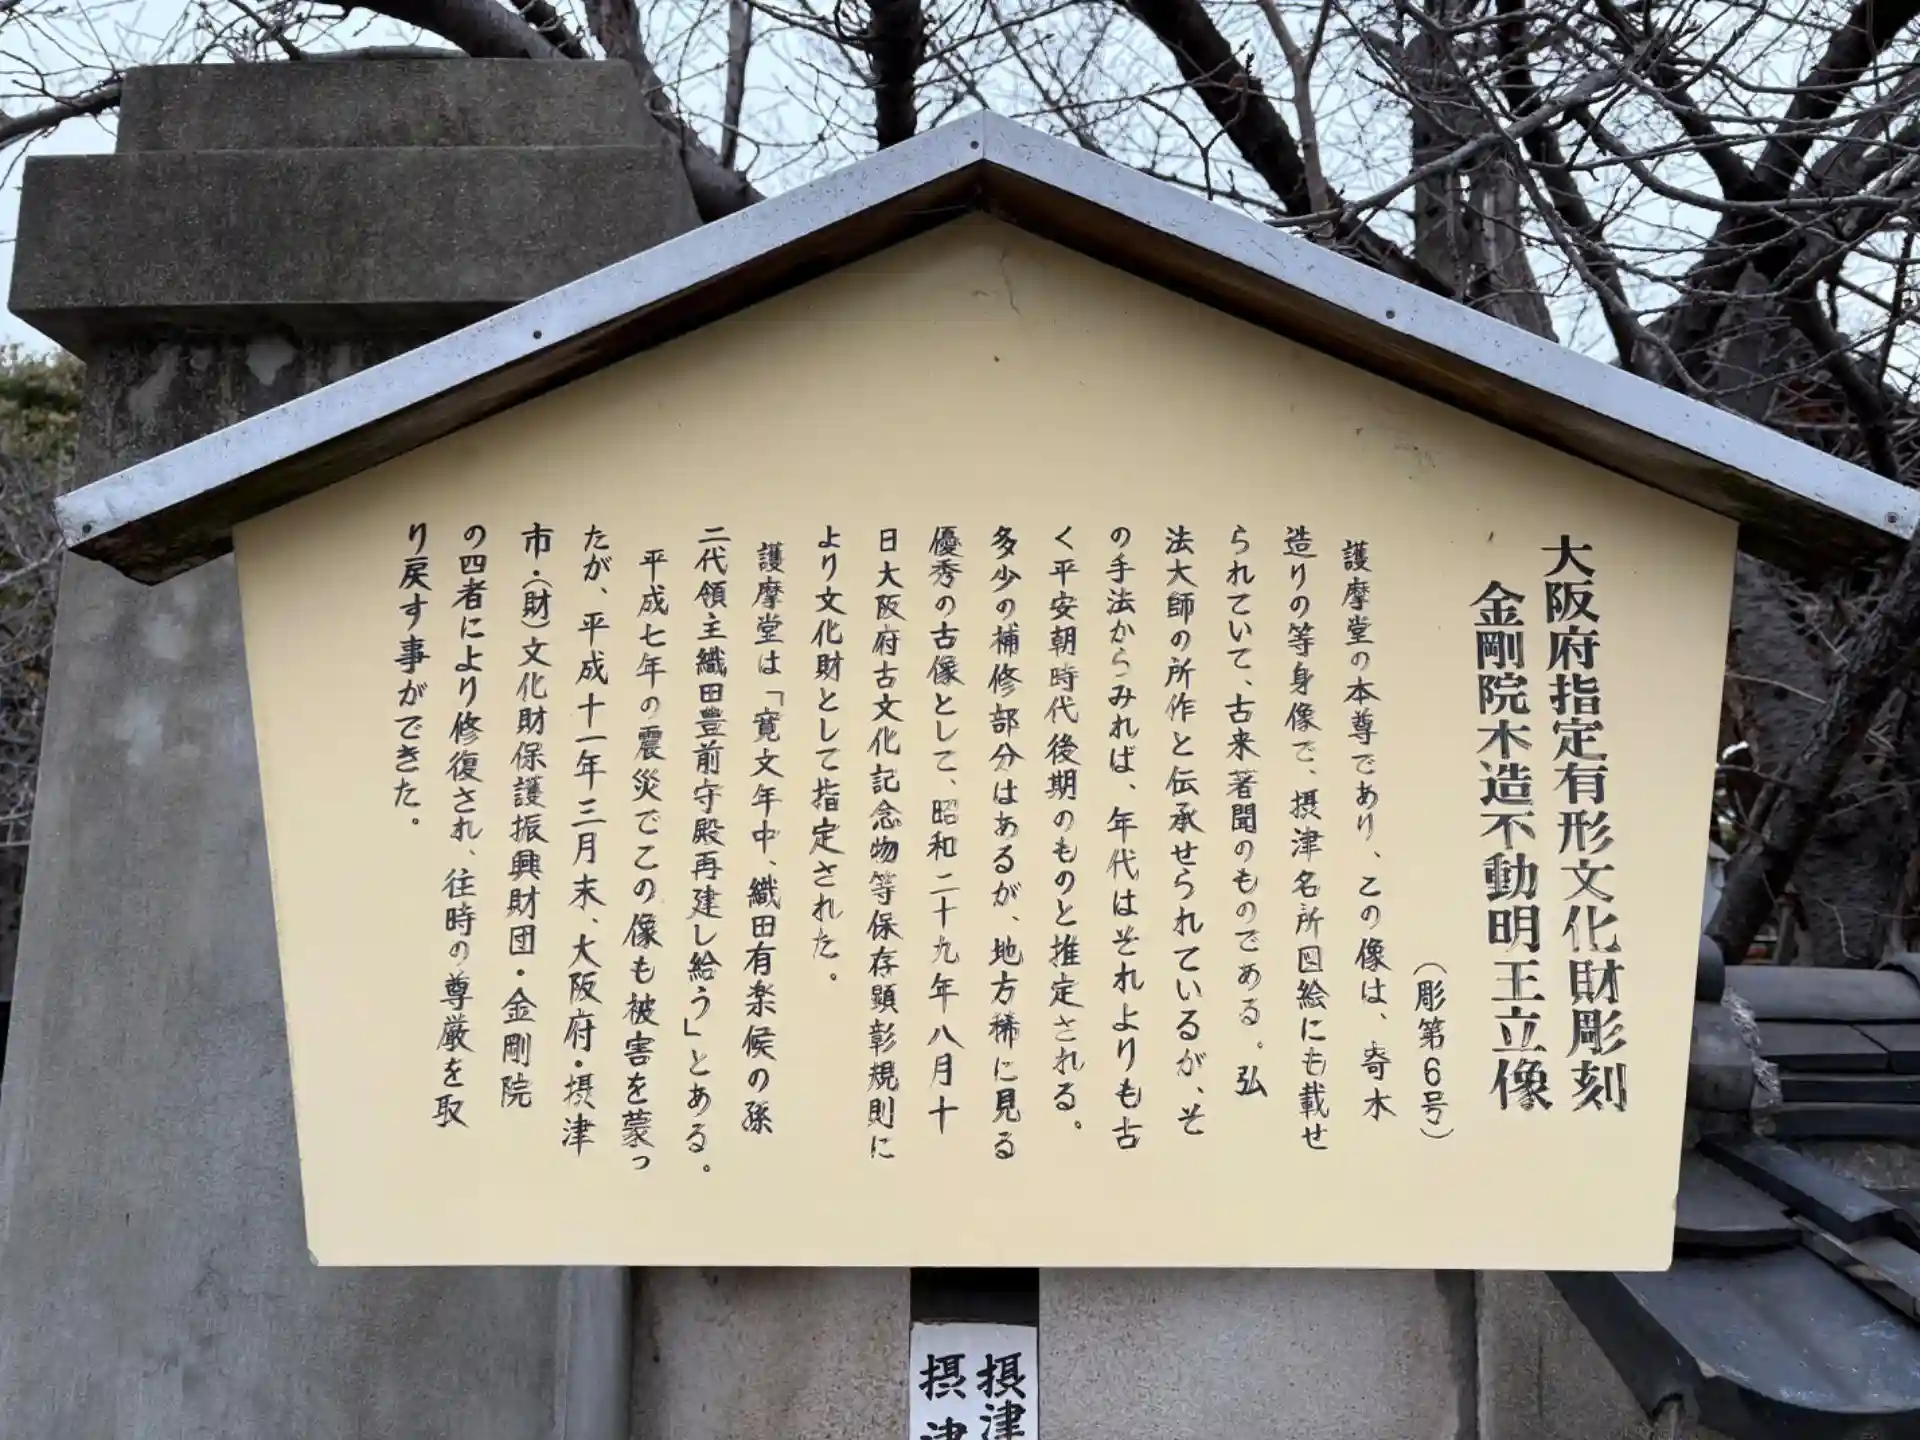 大阪府指定有形文化財彫刻
金剛院木造不動明王立像
（彫第６号）
護摩堂の本尊であり、この像は、寄木
造りの等身像で、摂津名所図絵にも載せ
られていて、古来著聞のものである。弘
法大師の所作と伝承せられているが、そ
の手法からみれば、年代はそれよりも古
く平安朝時代後期のものと推定される。
多少の補修部分はあるが、地方稀に見る
優秀の古像として、昭和二十九年八月十
日大阪府古文化記念物等保存顕彰規則に
より文化財として指定された。
護摩堂は「寛文年中、織田有楽候の孫
二代領主織田豊前守殿再建し給う」とある。
平成七年の震災でこの像も被害を蒙っ
たが、平成十一年三月末、大阪府・摂津
市・（財）文化財保護振興財団・金剛院
の四者により修復され、往時の尊厳を取
り戻す事ができた。
摂津
摂津